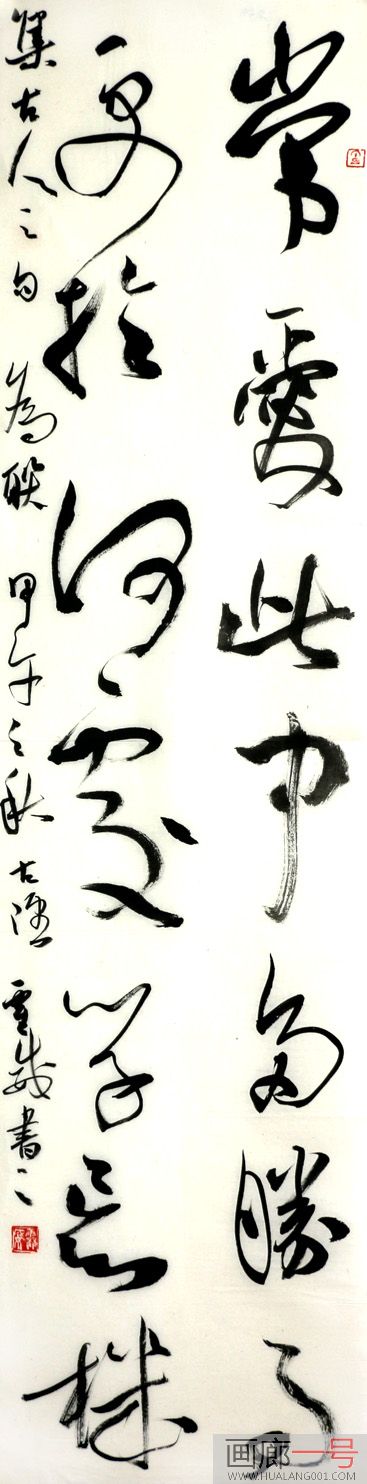 常爱此中多胜事
更於何处学忘机
集古人之句 為联 甲午之秋 古陲 云峨书之
画廊一号
WWW.HUALANG001.COM